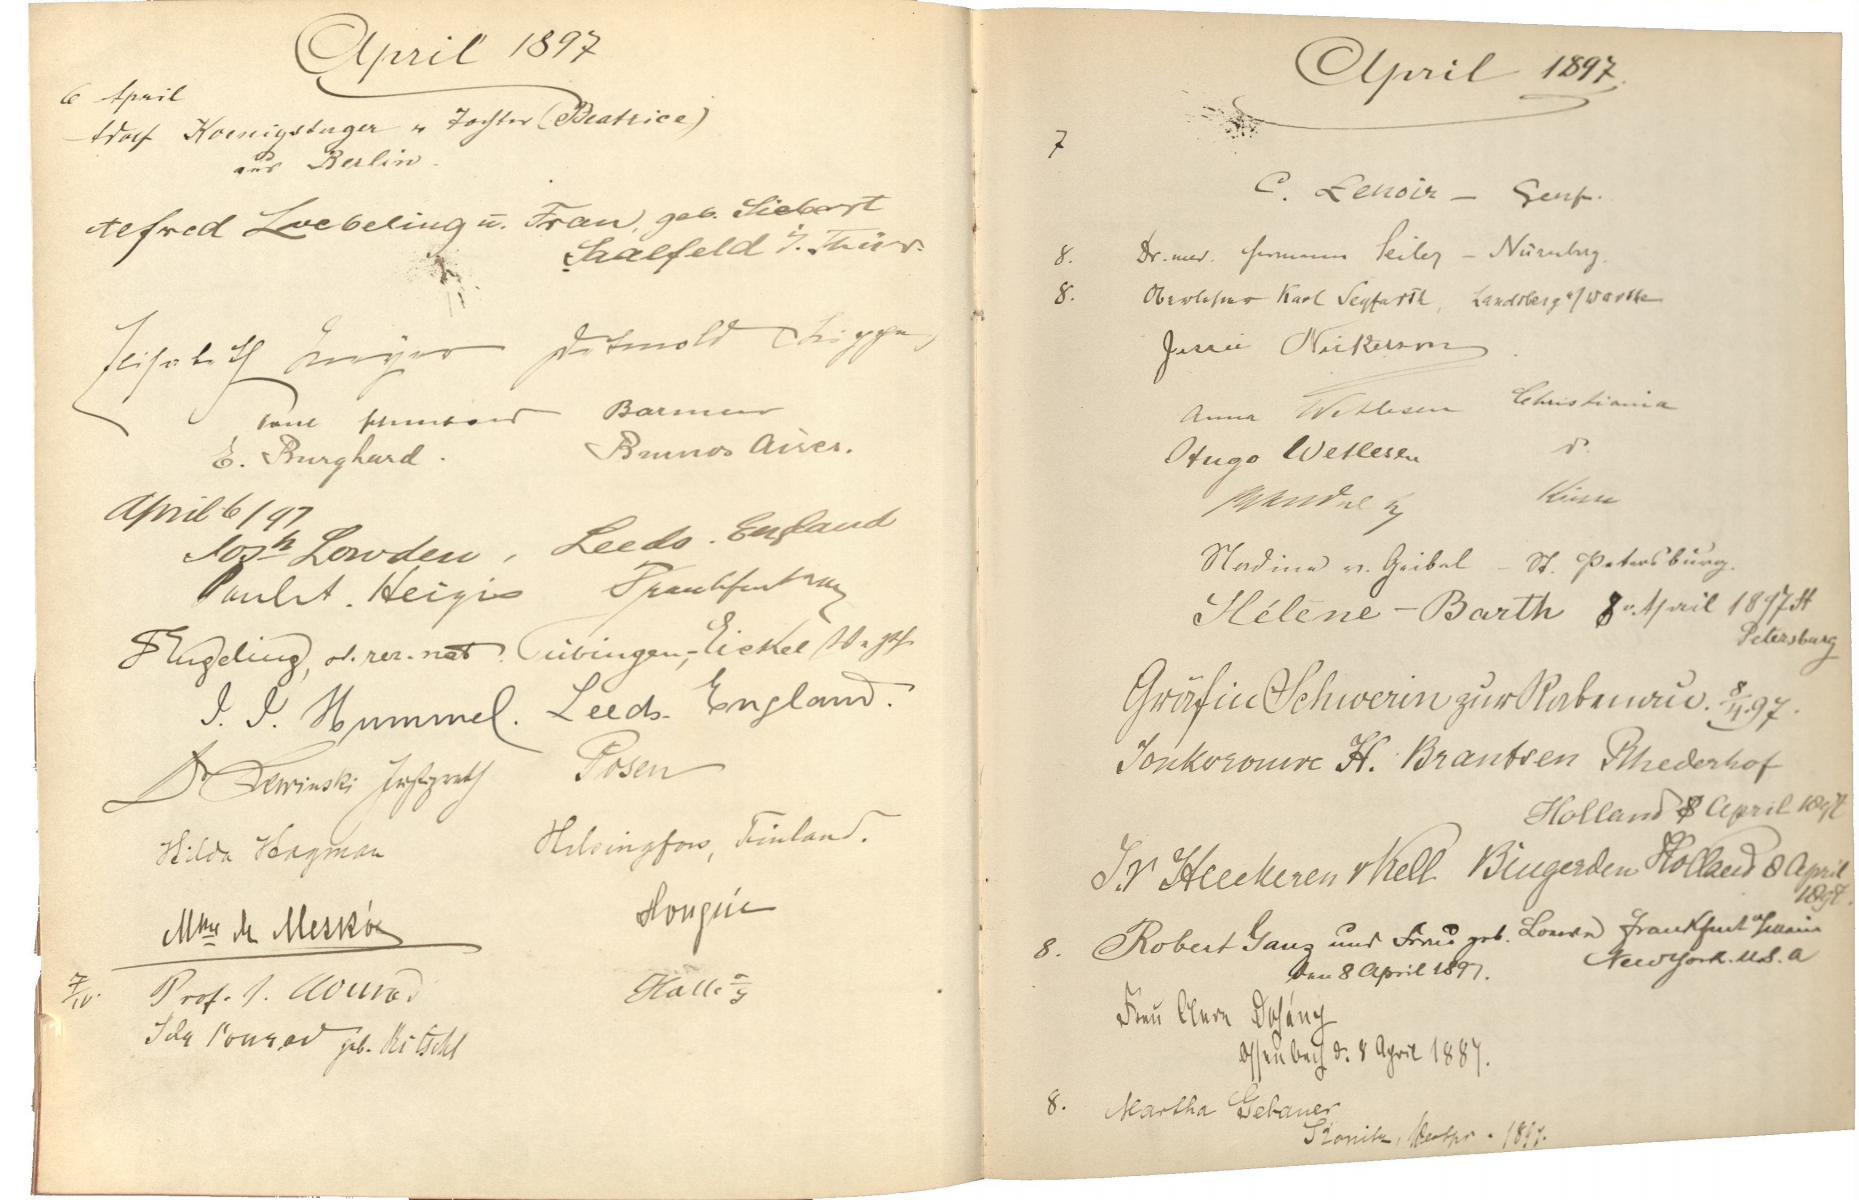 April 1897
6 April
Adolf Koenigsberger u Tochter (Beatrice)
aus Berlin.
Alfred Loebeling u. Frau, geb. Siebart
Saalfeld i. Thür.
Elisabeth Detmold (Lippe)
Barmen
E. Burghard. Buenos Aires.
April 6/97
Josh Lowden, Leeds. England
Heigis Frankfurt
Tübingen, Eickel
J. J. Hummel. Leeds. England.
Dr Lewinski Justizrath Posen
Hilda Hagman Helsingfors, Finland.
Mme de Meskó Hongrie
7/IV. Prof. J. Conrad Halle a/S
Ida Conrad geb. Ritschl
April 1897.
7
C. Lenoir – Genf.
8. Dr. med. Hermann Seiler – Nürnberg.
8. Oberlehrer Karl Seyfarth, Landsberg a/Warthe
Jessie Nickerson
Anna Wetlesen Christiania
Hugo Wetlesen d.
Nadina v. Geibel – St. Petersburg.
Hélène – Barth 8 v. April 1897 St
Petersburg
Gräfin Schwerin zur Rabenau. 8/4.97.
Jonkvrouwe H. Brantsen Rhederhof
Holland 8 April 1897
J. v Heeckeren v Kell Bingerden Holland 8 April
1897.
8. Robert Ganz und Frau geb. Frankfurt a/Main
den 8 April 1897. New York. U.S.A
Frau Anna
Offenbach d. 8 April 1887.
8. Martha Gebauer
Konitz, Westpr. 1897.